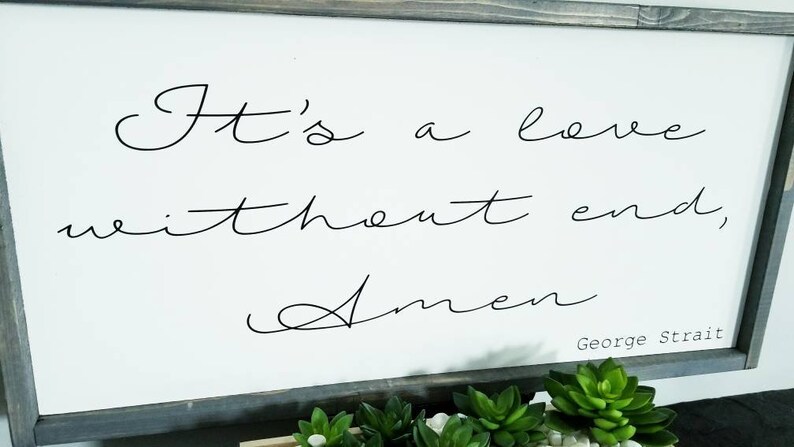 It's a love
without end,
Amen
George Strait